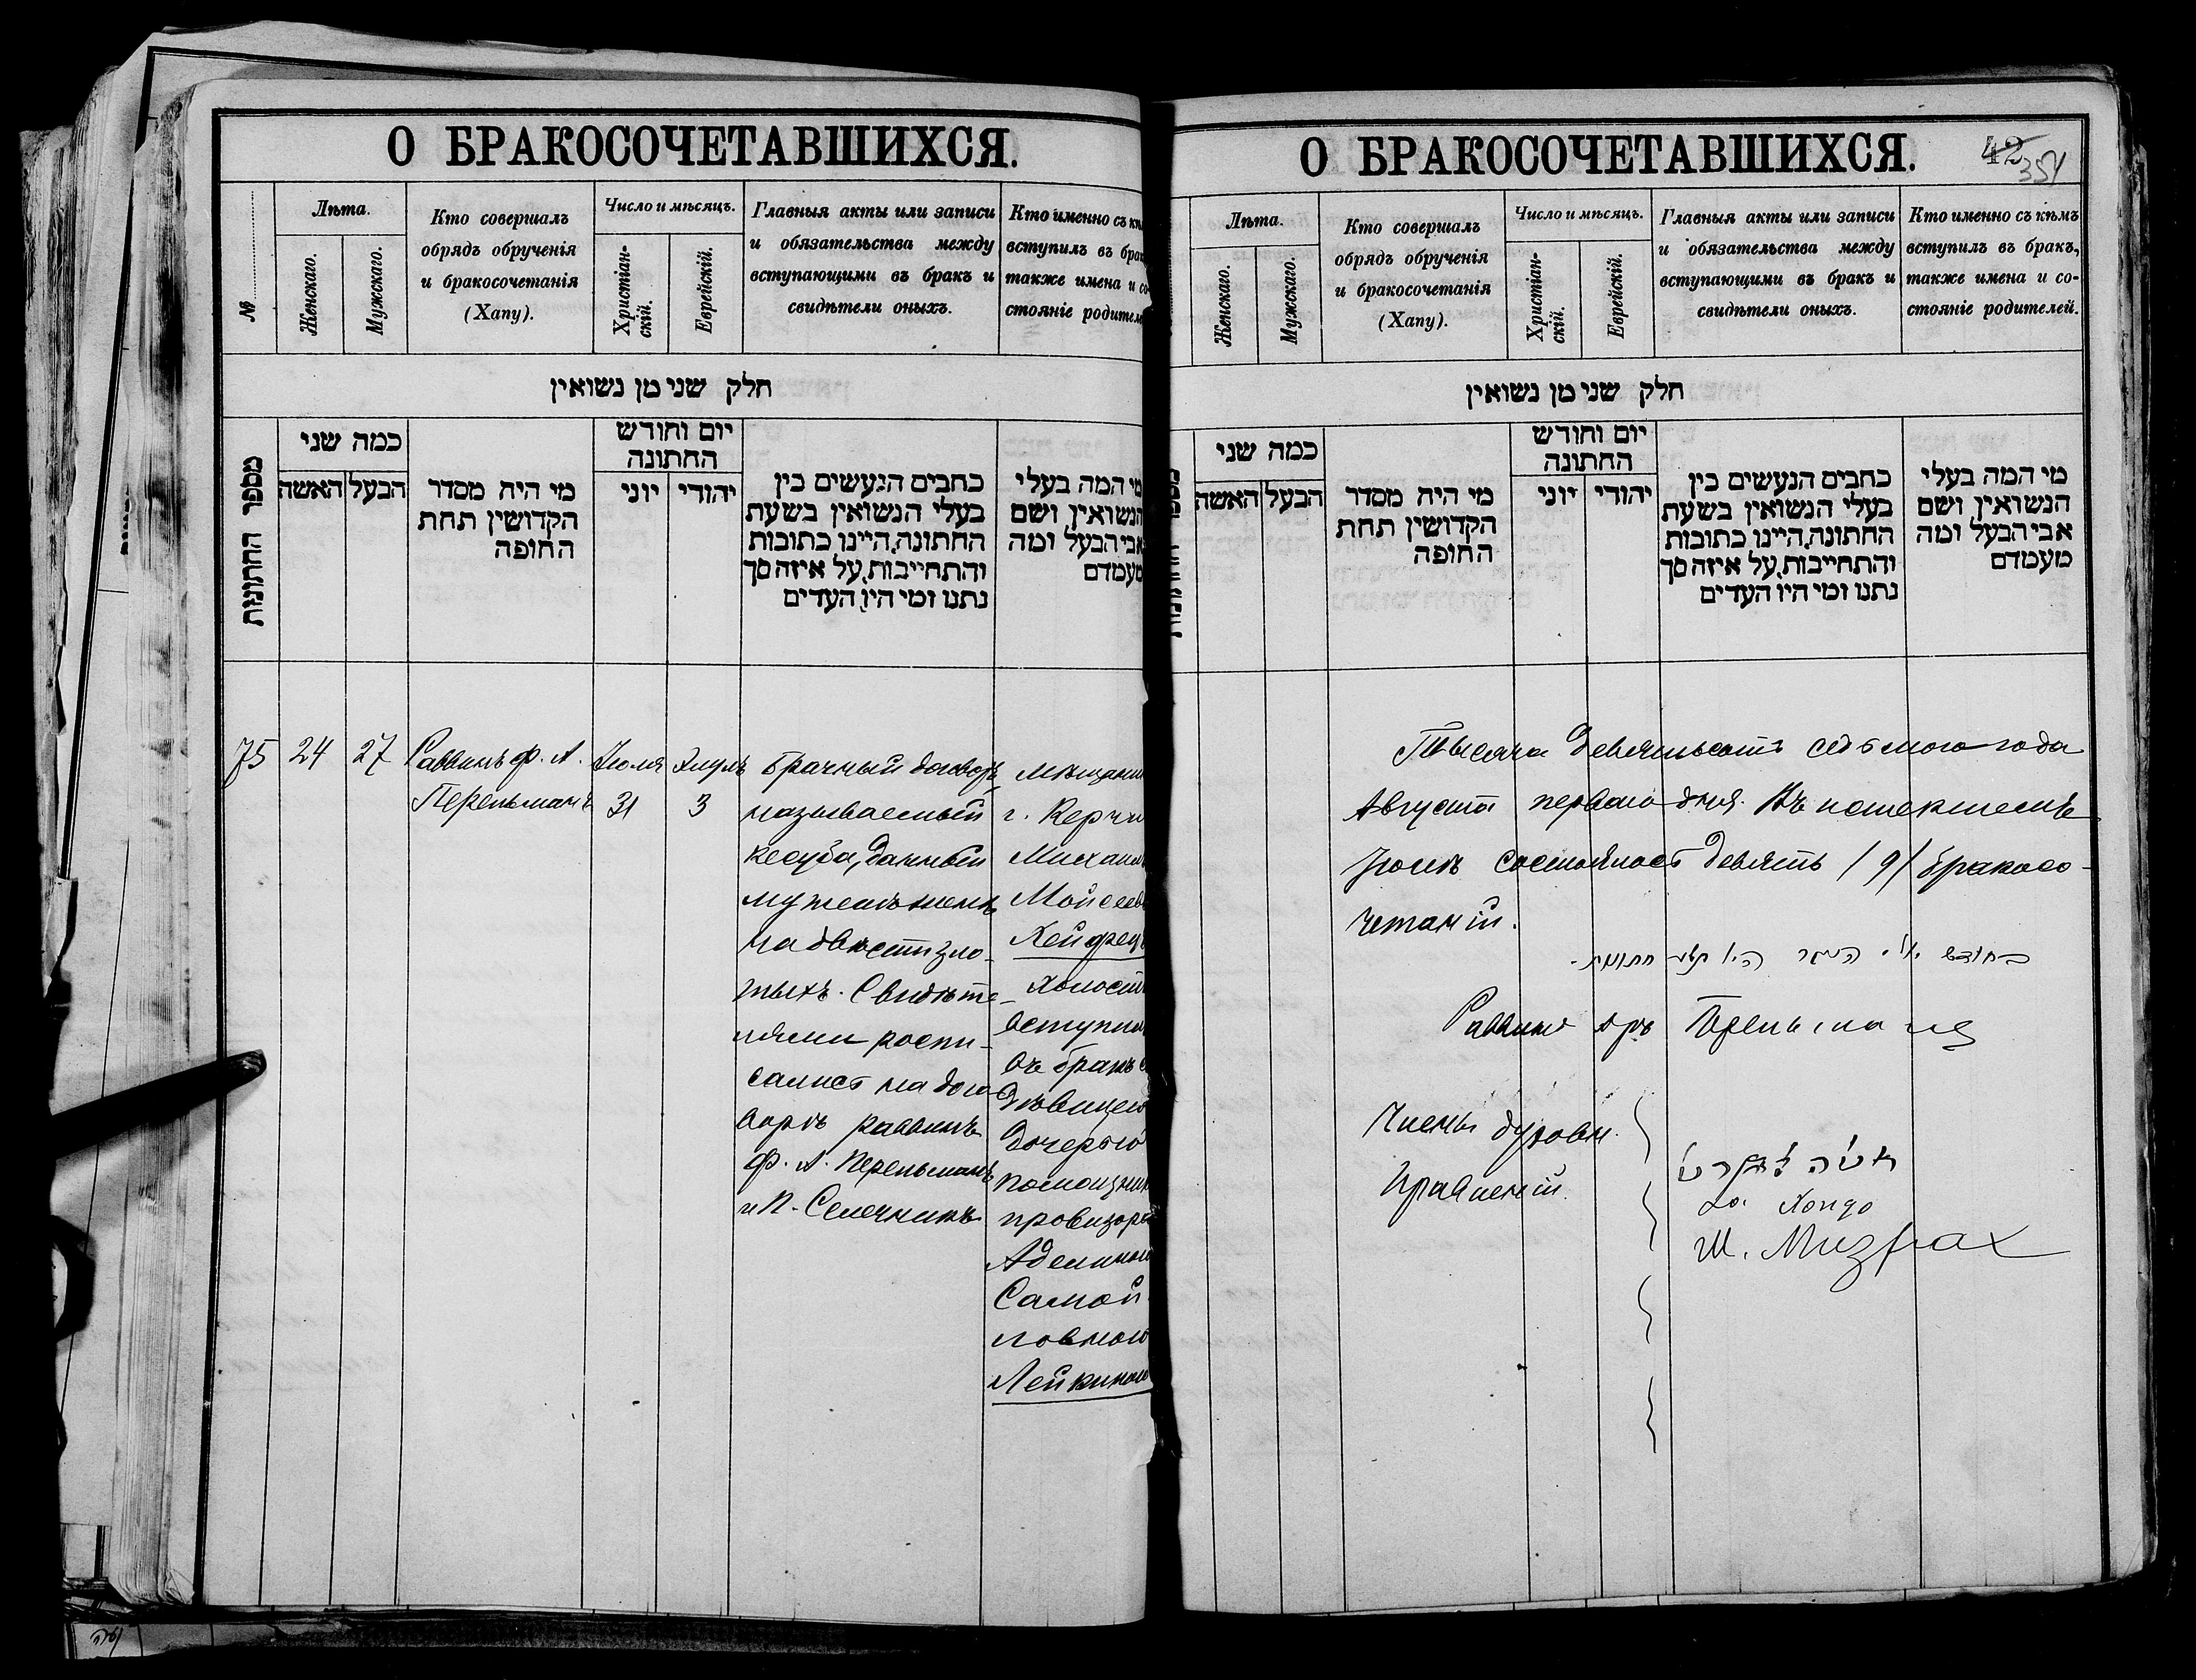 О БРАКОСОЧЕТАВШИХСЯ.
№
Лѣта.
Женскаго.
Мужскаго.
Кто совершалъ
обрядъ обрученія
и бракосочетанія
(Хапу).
Число и мѣсяцъ.
Христіан-
скій.
Еврейскій.
Главныя акты или записи
и обязательства между
вступающими въ бракъ и
свидѣтели оныхъ.
Кто именно съ
вступилъ въ
также имена и
стояніе
חלק שני מן נשואין
מספר החתונות
כמה שני
האשה
הבעל
מי היה מסדר
הקדושין תחת
החופה
יום וחודש
החתונה
יוני
יהודי
כתבים הנעשים בין
בעלי הנשואין בשעת
החתונה, היינו כתובות
והתחייבות, על איזה סך
נתנו ומי היו העדים
מי המה בעלי
הנשואין ושם
אבי הבעל ומה
מעמדם
75
24
27
Раввинъ Ф. А.
Перельманъ
Іюля
31
Элулъ
3
Брачный договоръ,
называемый
кесуба, данный
мужемъ женѣ
на двѣсти зло-
тыхъ. Свидѣте-
лями роспи-
сались на дого-
ворѣ раввинъ
Ф. А. Перельманъ
и П. Селечникъ
г. Керчи
Хейфецъ
въ бракъ
дочерью
Самой-
ловною
Лейкиною
О БРАКОСОЧЕТАВШИХСЯ.
42
351
Лѣта.
Женскаго.
Мужскаго.
Кто совершалъ
обрядъ обрученія
и бракосочетанія
(Хапу).
Число и мѣсяцъ.
Христіан-
скій.
Еврейскій.
Главныя акты или записи
и обязательства между
вступающими въ бракъ и
свидѣтели оныхъ.
Кто именно съ кѣмъ
вступилъ въ бракъ,
также имена и со-
стояніе родителей.
חלק שני מן נשואין
כמה שני
האשה
הבעל
מי היה מסדר
הקדושין תחת
החופה
יום וחודש
החתונה
יוני
יהודי
כתבים הנעשים בין
בעלי הנשואין בשעת
החתונה, היינו כתובות
והתחייבות, על איזה סך
נתנו ומי היו העדים
מי המה בעלי
הנשואין ושם
אבי הבעל ומה
מעמדם
Тысяча девятьсотъ седьмого года
Августа перваго дня. Въ истекшемъ
Іюлѣ состоялось девять /9/ бракосо-
четаній.
בחודש יולי העבר היו תשע חתונות.
Раввинъ Перельманъ
Члены духовн.
Правленій.
Ш. Мизрах